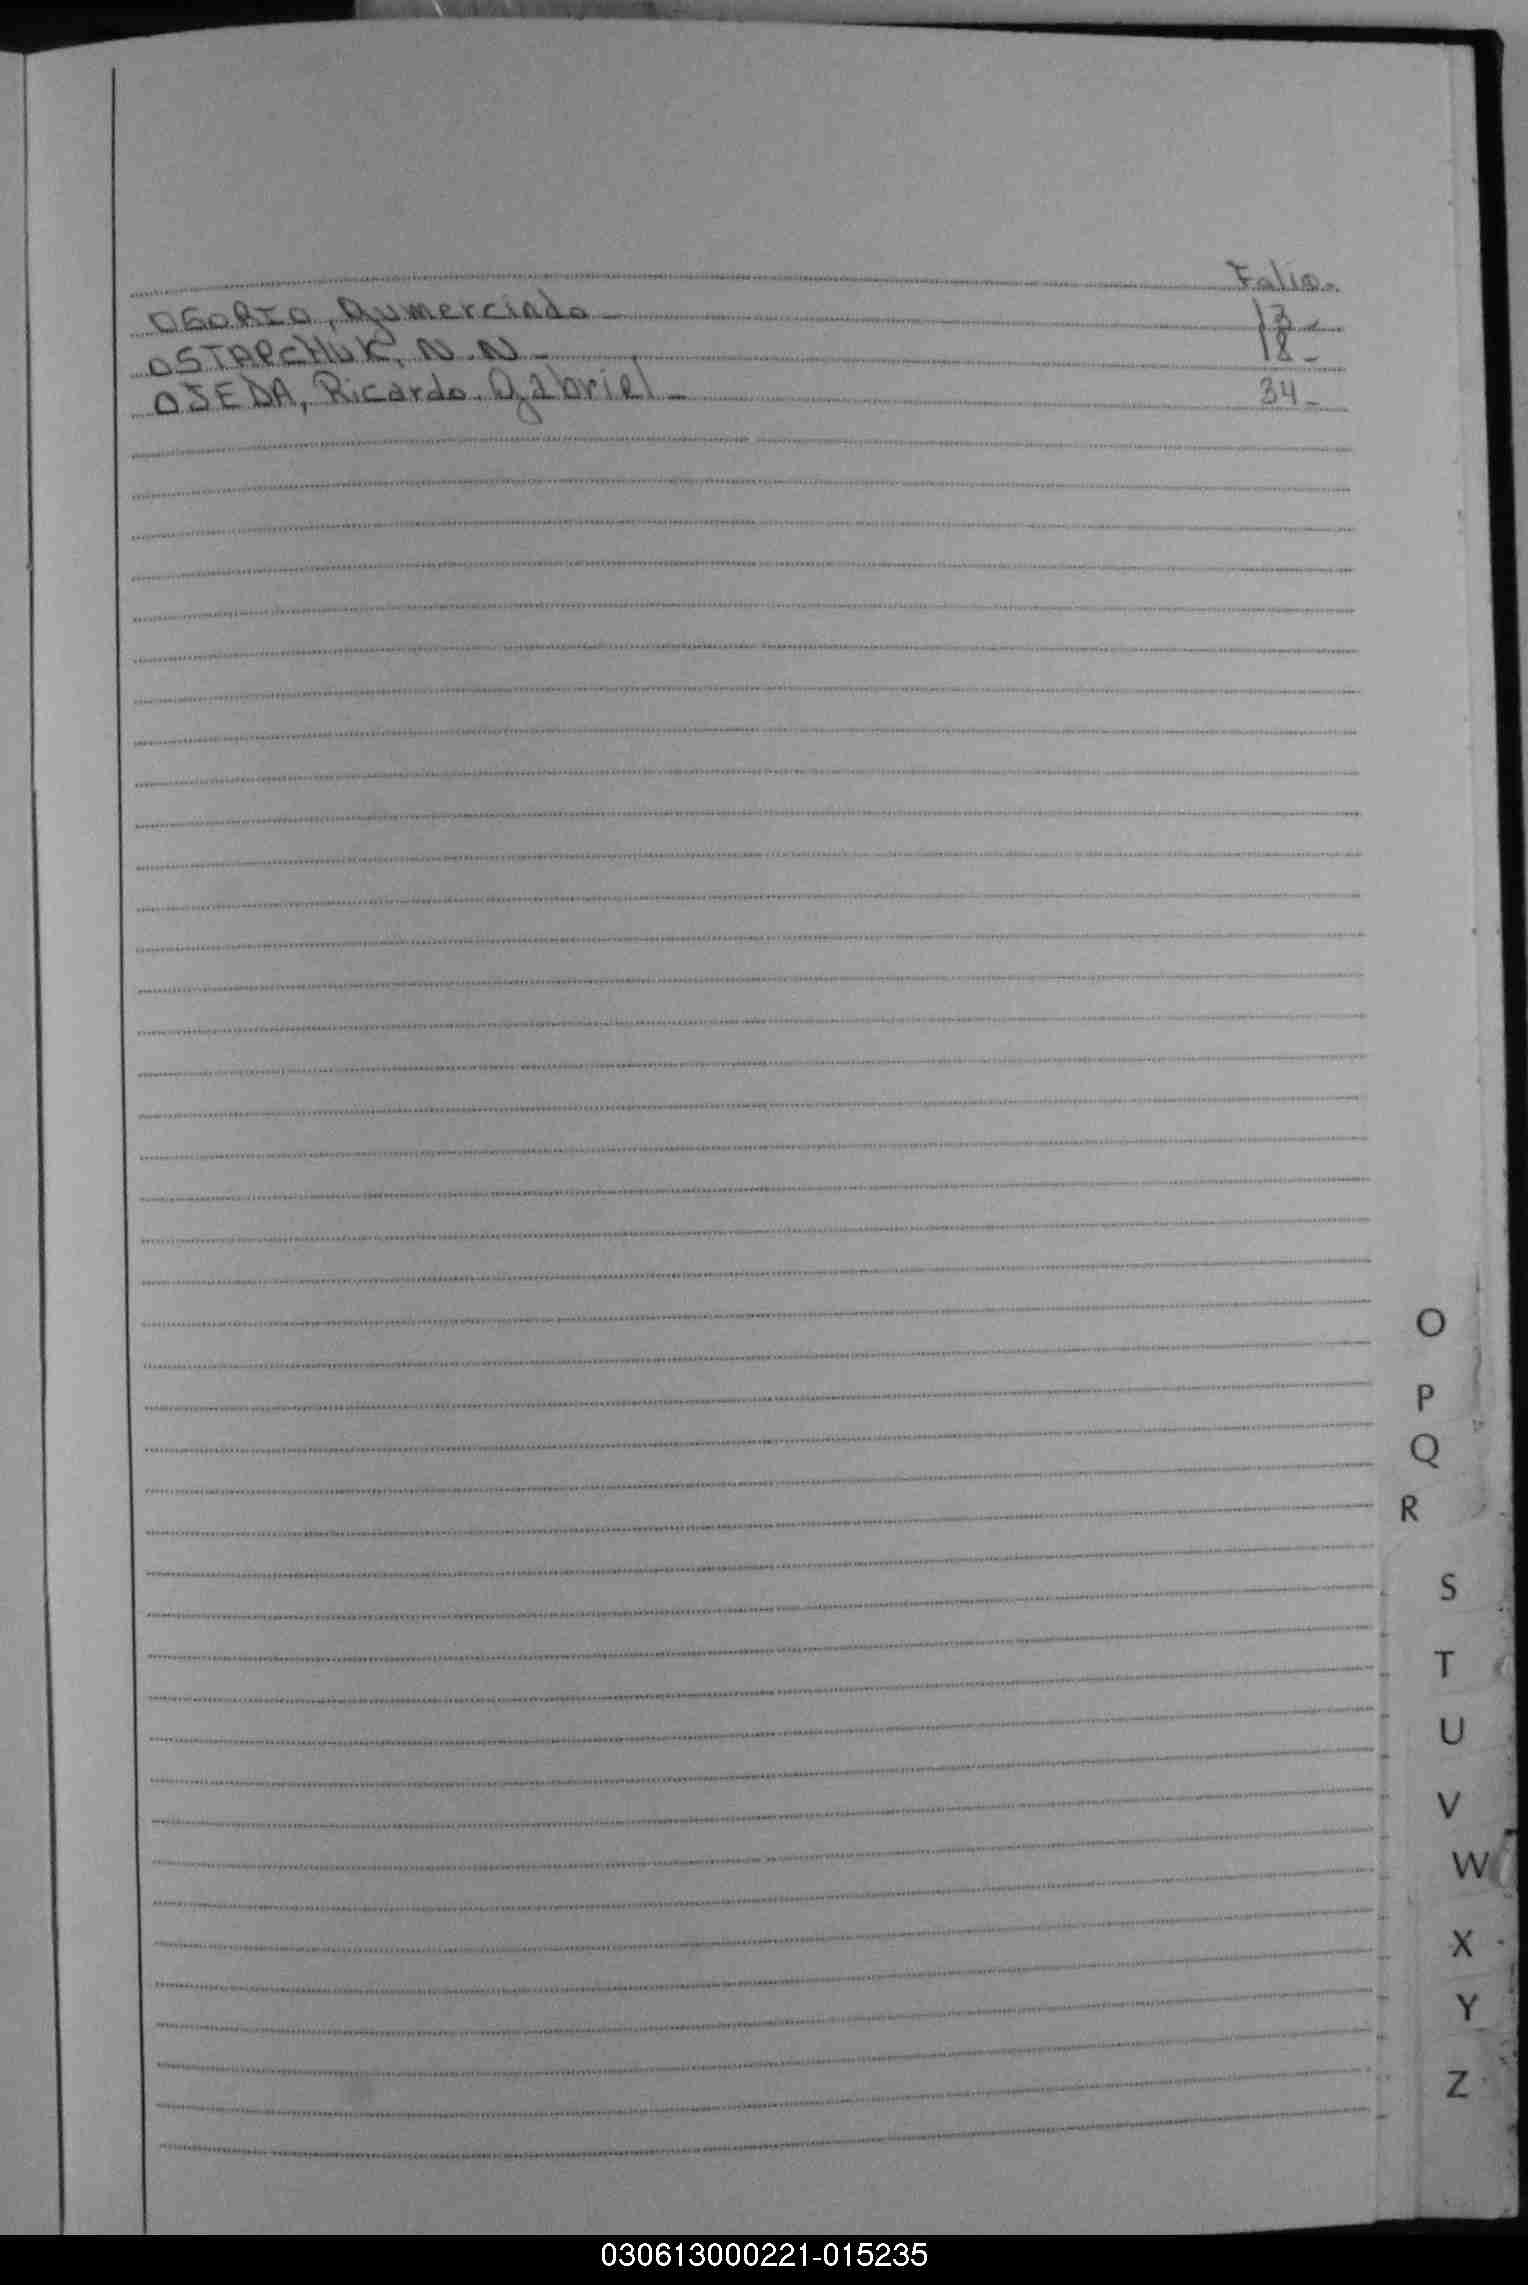 Folio.
OSORIO, Gumercindo - 13 -
OSTAPCHUK, N. N - 18 -
OJEDA, Ricardo Gabriel - 34 -
O
P
Q
R
S
T
U
V
W
X
Y
Z
030613000221-015235